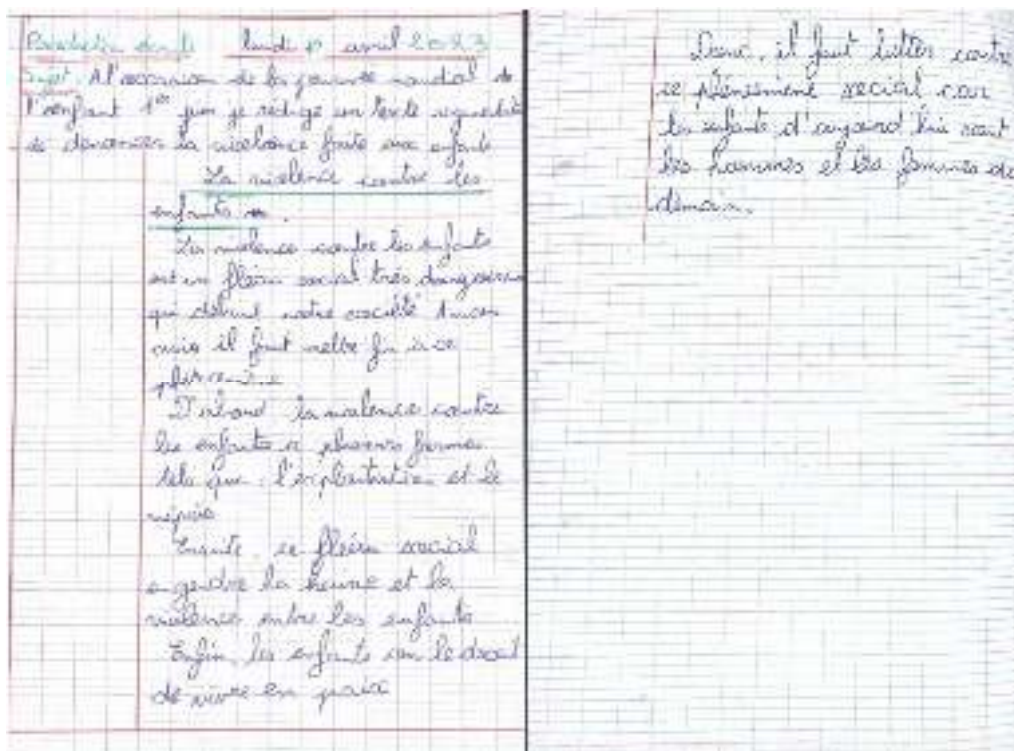 Production écrite lundi avril 2023
Sujet : A l'occasion de la journée mondial de
l'enfant 1er juin je rédige un texte
de dénoncer la violence faite aux enfants
La violence contre les
enfants
La violence contre les enfants
est un fléau social très dangereux
qui détruit notre société
mais il faut mettre fin à ce
D'abord la violence contre
les enfants a plusieurs formes
tels que : l'exploitation et le
mépris
Ensuite, ce fléau social
engendre la haine et la
violence entre les enfants
Enfin, les enfants on le droit
de vivre en paix
Donc, il faut lutter contre
ce phénomène social car
les enfants d'aujourd'hui sont
les hommes et les femmes de
demain.